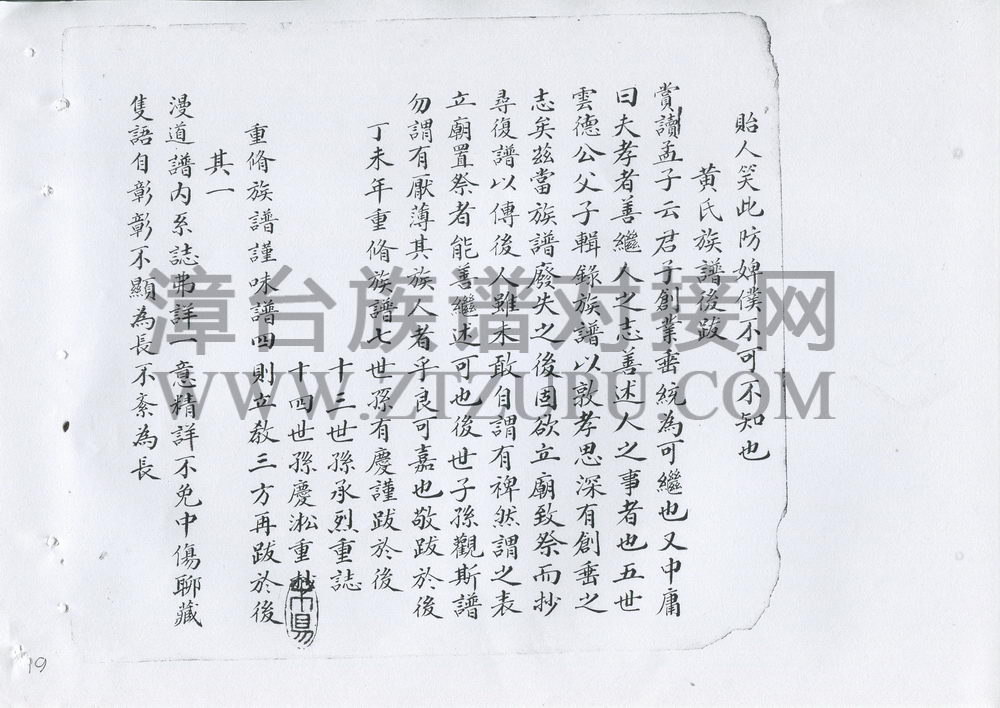 貽人笑此防婢僕不可不知也
黄氏族譜後跋
賞讀孟子云君子創業垂統為可繼也又中庸
曰夫孝者善繼人之志善述人之事者也五世
雲德公父子輯錄族譜以敦孝思深有創垂之
志矣茲當族譜廢失之後固欲立廟致祭而抄
尋復譜以傳後人雖未敢自謂有裨然謂之表
立廟置祭者能善繼述可也後世子孫觀斯譜
勿謂有厭薄其族人者乎良可嘉也敬跋於後
丁未年重脩族譜七世孫有慶謹跋於後
十三世孫承烈重誌
十四世孫慶淞重抄
重脩族譜謹味譜四則立教三方再跋於後
其一
漫道譜内系誌弗詳一意精詳不免中傷聊藏
隻語自彰彰不顯為長不紊為長
漳台族谱对接网
WWW.ZTZUPU.COM
19